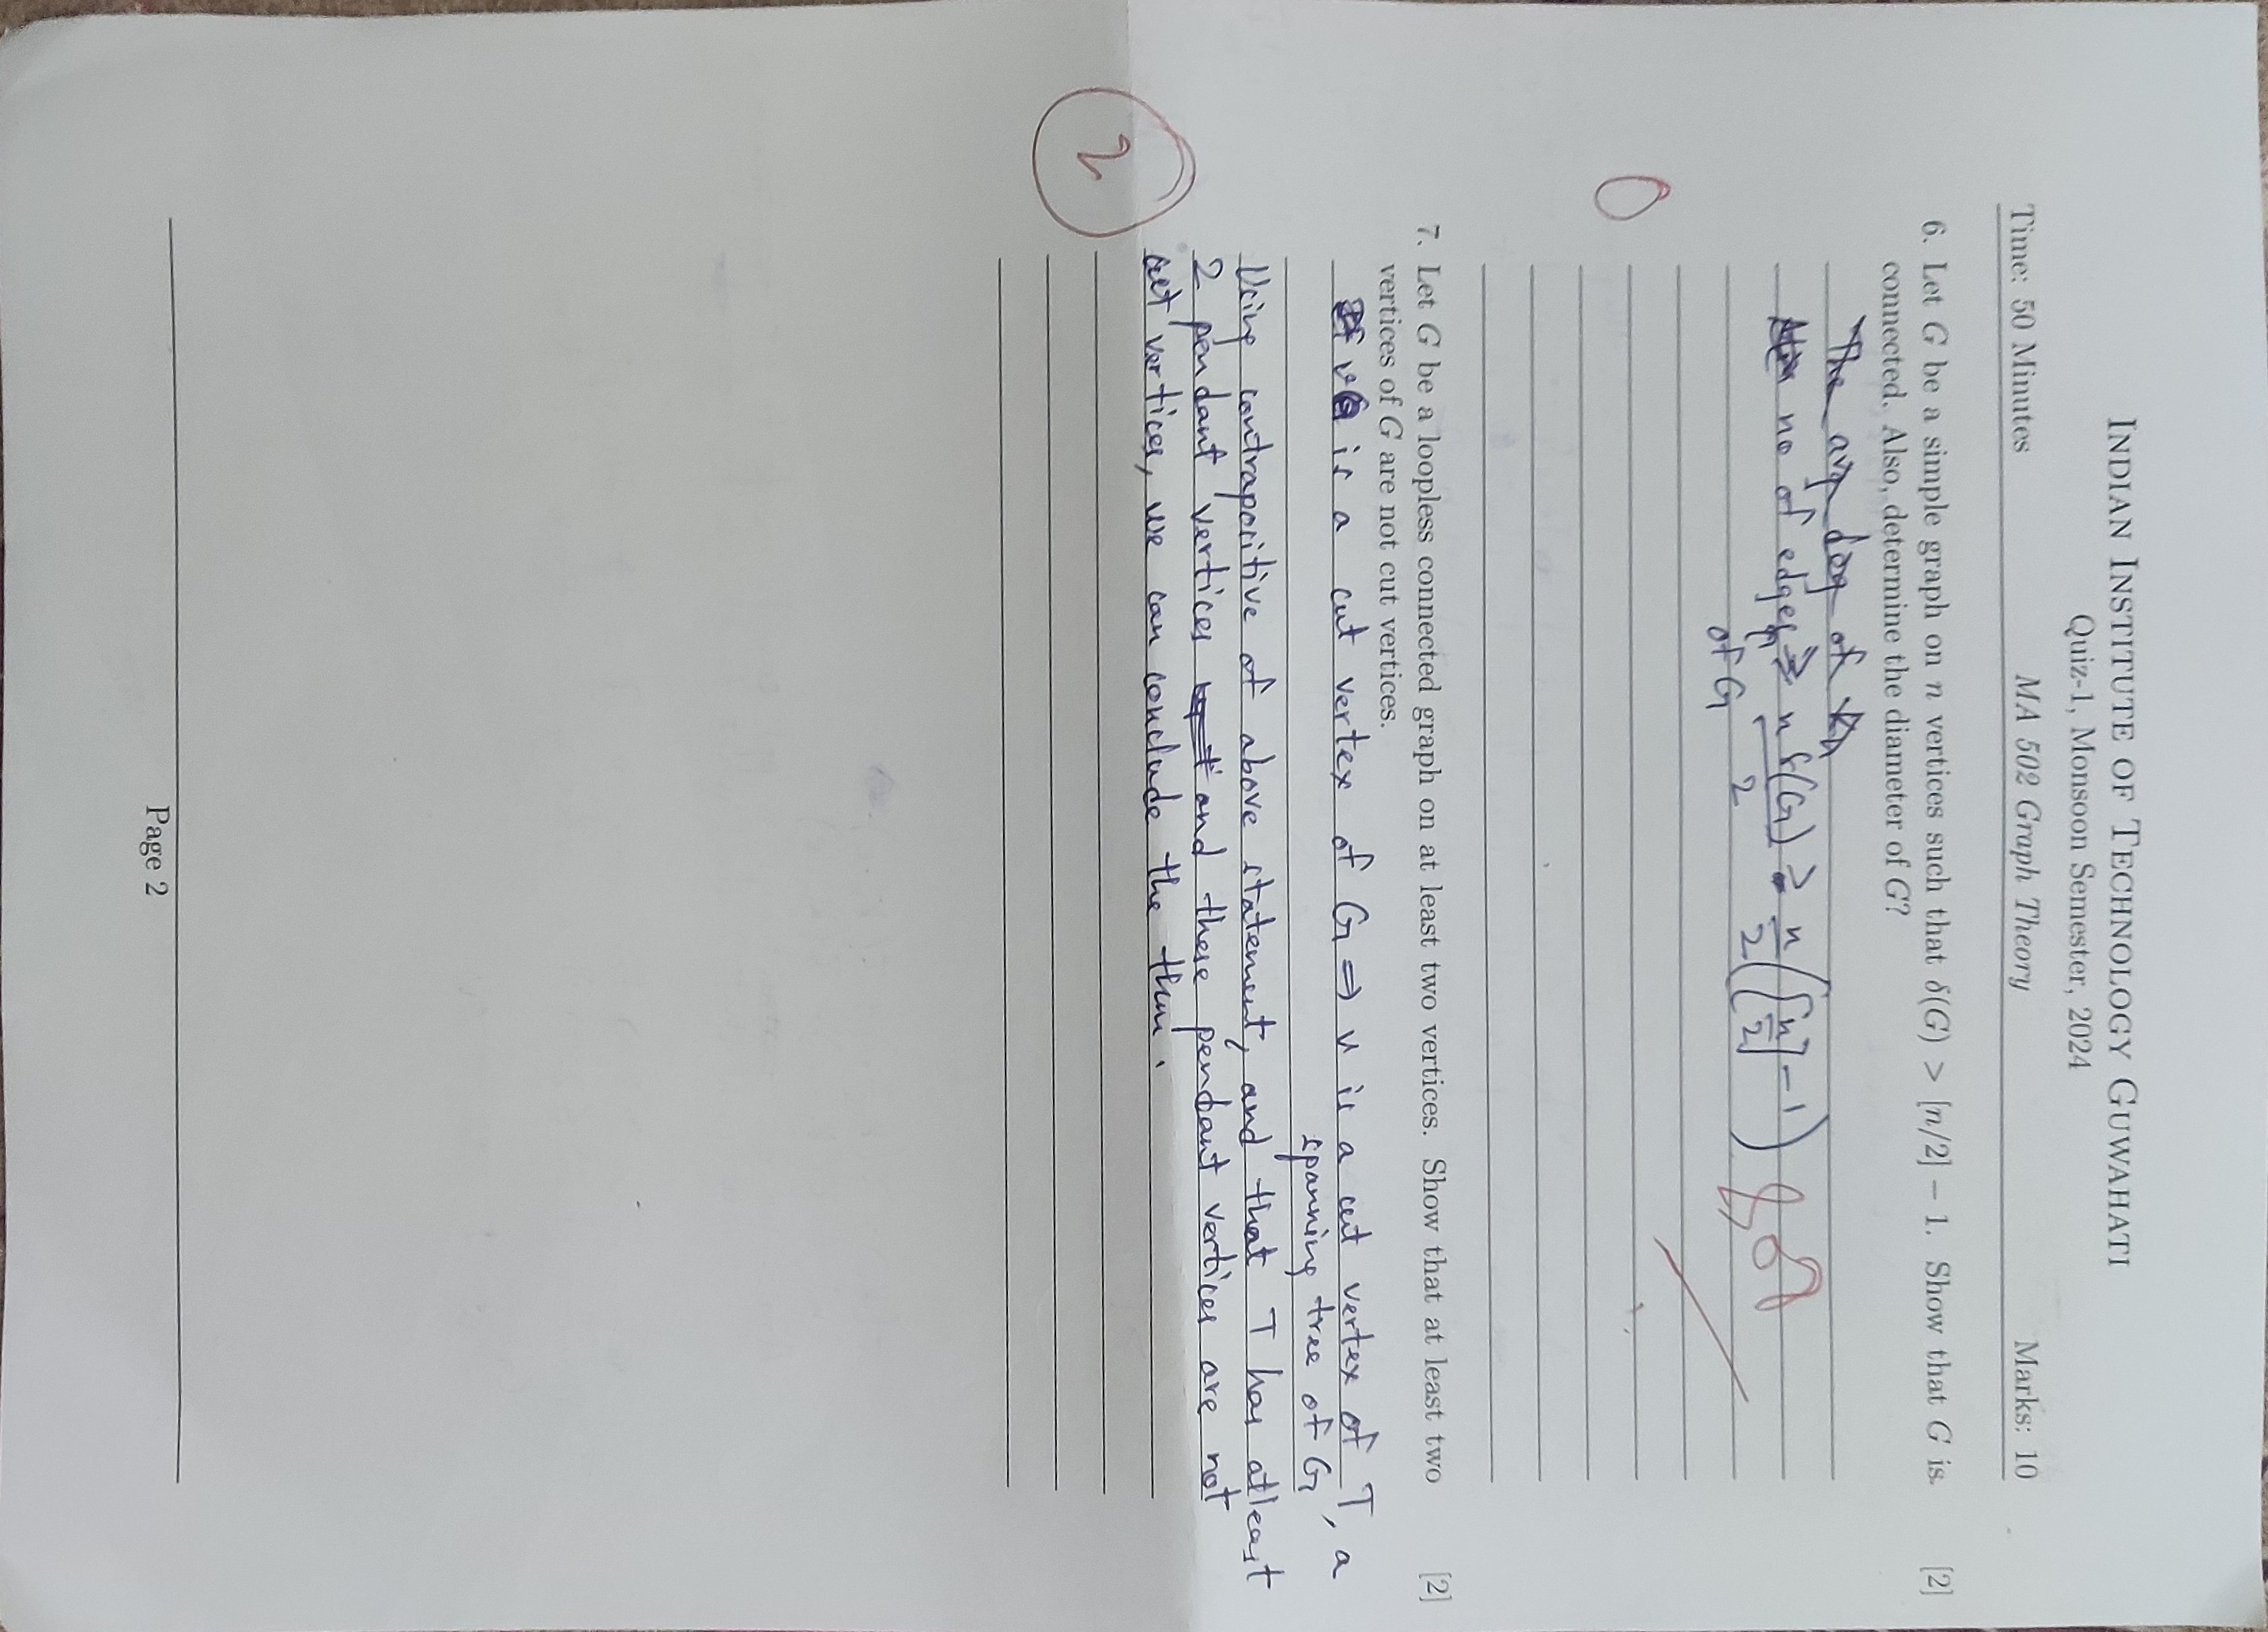 INDIAN INSTITUTE OF TECHNOLOGY GUWAHATI
Quiz-1, Monsoon Semester, 2024
Time: 50 Minutes MA 502 Graph Theory Marks: 10
6. Let G be a simple graph on n vertices such that δ(G) > ⌈n/2⌉ − 1. Show that G is connected. Also, determine the diameter of G? [2]
The avg deg of
no of edges ≥ n δ(G)/2 > n/2 (⌈n/2⌉ − 1)
of G
0
7. Let G be a loopless connected graph on at least two vertices. Show that at least two vertices of G are not cut vertices. [2]
v is a cut vertex of G ⇒ v is a cut vertex of T, a
spanning tree of G
Using contrapositive of above statement, and that T has atleast
2 pendant vertices and these pendant vertices are not
cut vertices, we can conclude the thm.
2
Page 2